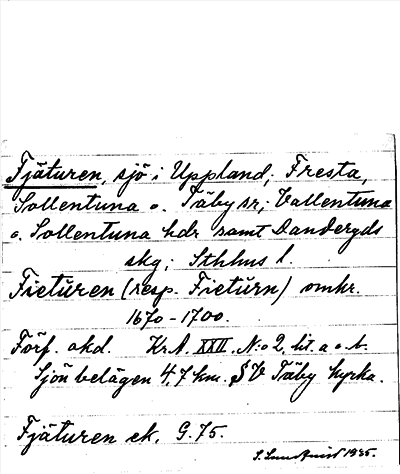 Fjäturen, sjö i Uppland, Fresta,
Sollentuna o. Täby snr; Vallentuna
o. Sollentuna hdr samt Danderyds
skg; Sthlms l.
Fietüren (resp. Fietürn) omkr.
1670-1700.
Förf. okd. Kr.A. XXII. N:o 2. lit. a o. b.
Sjön belägen 4,7 km. SV Täby kyrka.
Fjäturen ek. G.75.
S. 1935.